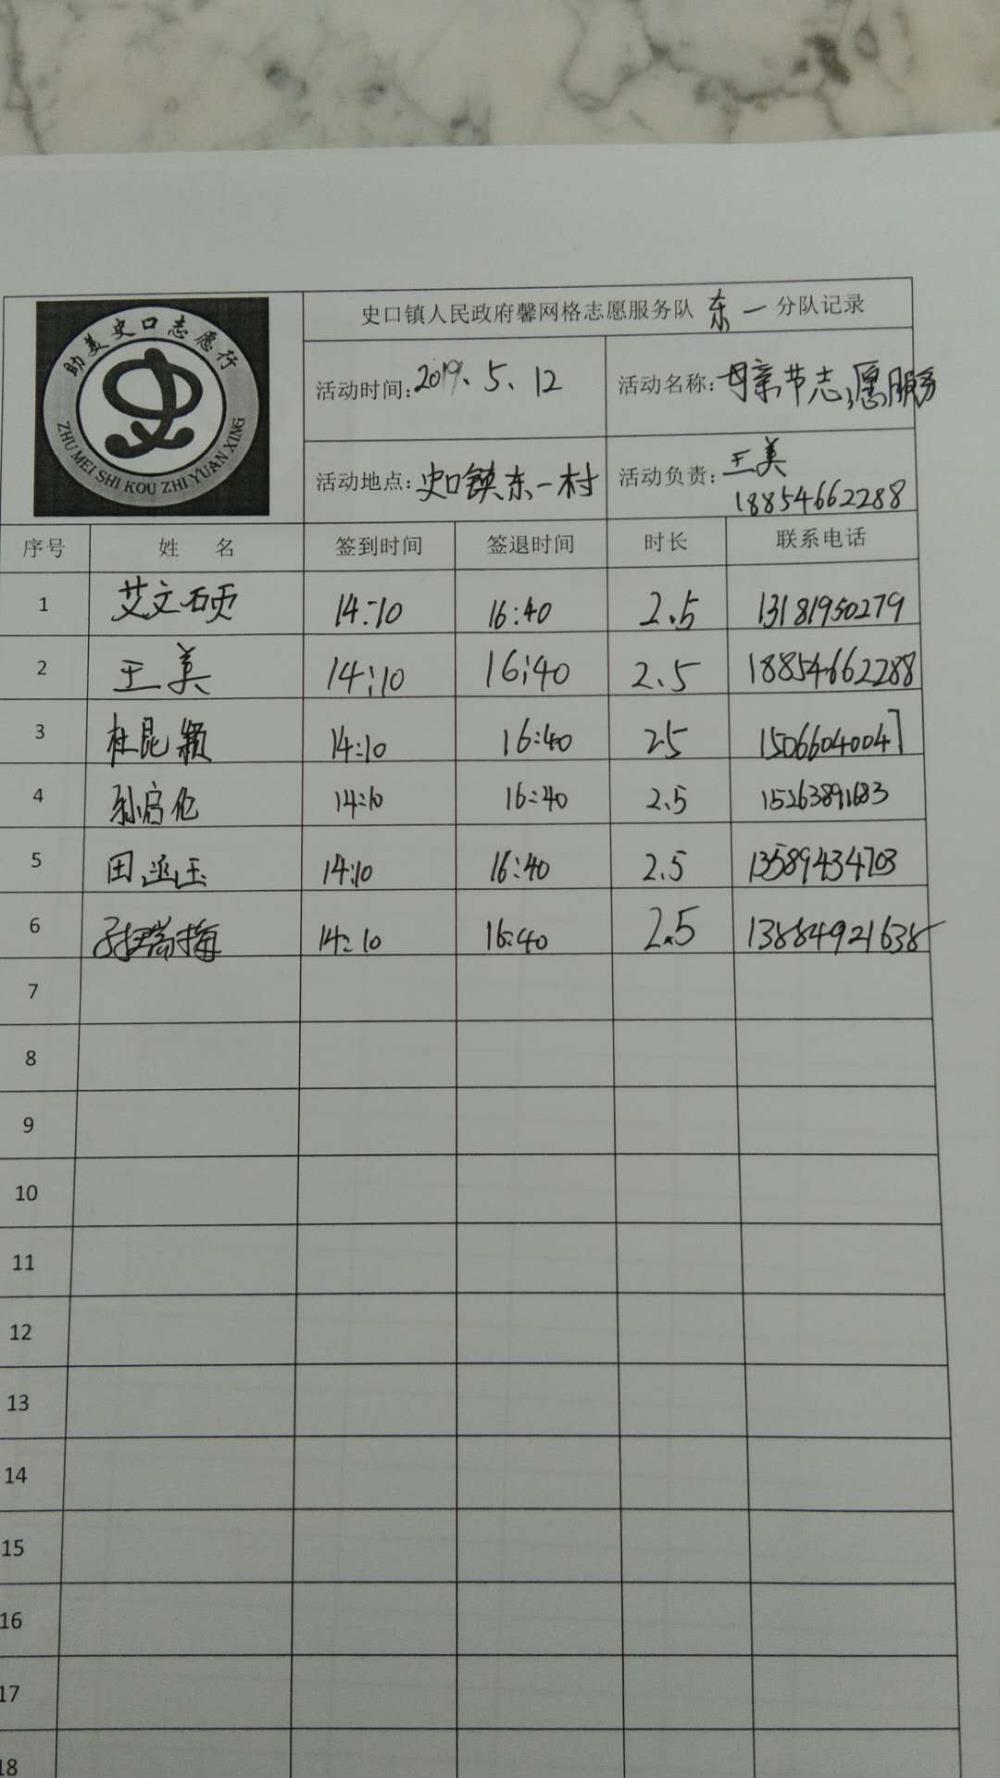 助美史口志愿行
ZHU MEI SHI KOU ZHI YUAN XING
史口镇人民政府馨网格志愿服务队 东一 分队记录
活动时间:2019、5、12 活动名称:母亲节志愿服务
活动地点:史口镇东一村 活动负责:王美
18854662288
序号 姓 名 签到时间 签退时间 时长 联系电话
1 艾文硕 14:10 16:40 2.5 13181950279
2 王美 14:10 16:40 2.5 18854662288
3 杜昆颖 14:10 16:40 25 15066040047
4 孙启伦 14:10 16:40 2.5 15263891683
5 田运玉 14:10 16:40 2.5 13589434703
6 张瑞梅 14:10 16:40 2.5 13884921638
7
8
9
10
11
12
13
14
15
16
17
18